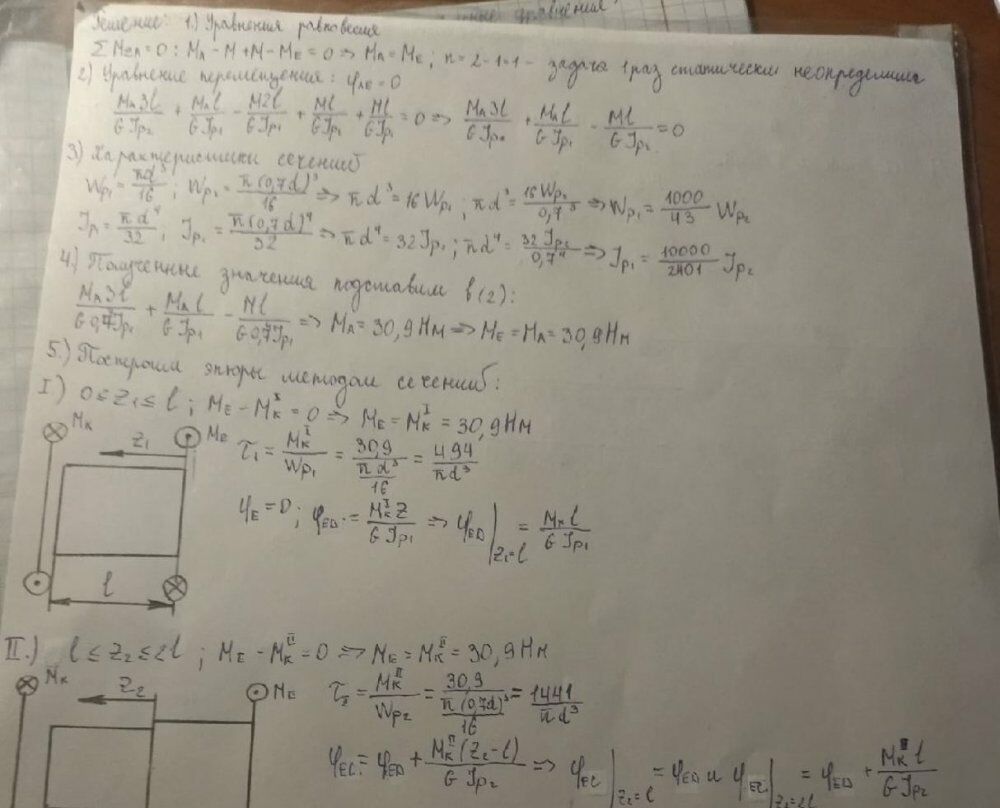 Решение: 1.) Уравнения равновесия
∑ M_ZA = 0 : M_A - M + M - M_E = 0 => M_A = M_E ; n = 2-1=1 - задача 1 раз статически неопределима
2) Уравнение перемещения: φ_AE = 0
M_A3l/GJp₂ + M_Al/GJp₁ - M2l/GJp₁ + Ml/GJp₁ + Ml/GJp₁ = 0 => M_A3l/GJp₂ + M_Al/GJp₁ - Ml/GJp₂ = 0
3) Характеристики сечений
Wp₁ = πd³/16 ; Wp₂ = π(0,7d)³/16 => πd³ = 16Wp₁ ; πd³ = 16Wp₂/0,7³ => Wp₁ = 1000/43 Wp₂
Jp₁ = πd⁴/32 ; Jp₂ = π(0,7d)⁴/32 => πd⁴ = 32Jp₁ ; πd⁴ = 32Jp₂/0,7⁴ => Jp₁ = 10000/2401 Jp₂
4.) Полученные значения подставим в (2):
M_A3l/G0,7⁴Jp₁ + M_Al/GJp₁ - Ml/G0,7⁴Jp₁ => M_A = 30,9 Нм => M_E = M_A = 30,9 Нм
5.) Построим эпюры методом сечений:
I) 0 ≤ z₁ ≤ l ; M_E - M_K^I = 0 => M_E = M_K^I = 30,9 Нм
M_K
z₁
M_E
τ₁ = M_K^I/Wp₁ = 30,9/(πd³/16) = 494/πd³
φ_E = 0 ; φ_ED = M_K^I z/GJp₁ => φ_ED|z₁=l = M_K l/GJp₁
l
II.) l ≤ z₂ ≤ 2l ; M_E - M_K^II = 0 => M_E = M_K^II = 30,9 Нм
M_K
z₂
M_E
τ₂ = M_K^II/Wp₂ = 30,9/(π(0,7d)³/16) = 1441/πd³
φ_EC = φ_ED + M_K^II(z₂-l)/GJp₂ => φ_EC|z₂=l = φ_ED и φ_EC|z₂=2l = φ_ED + M_K^II l/GJp₂